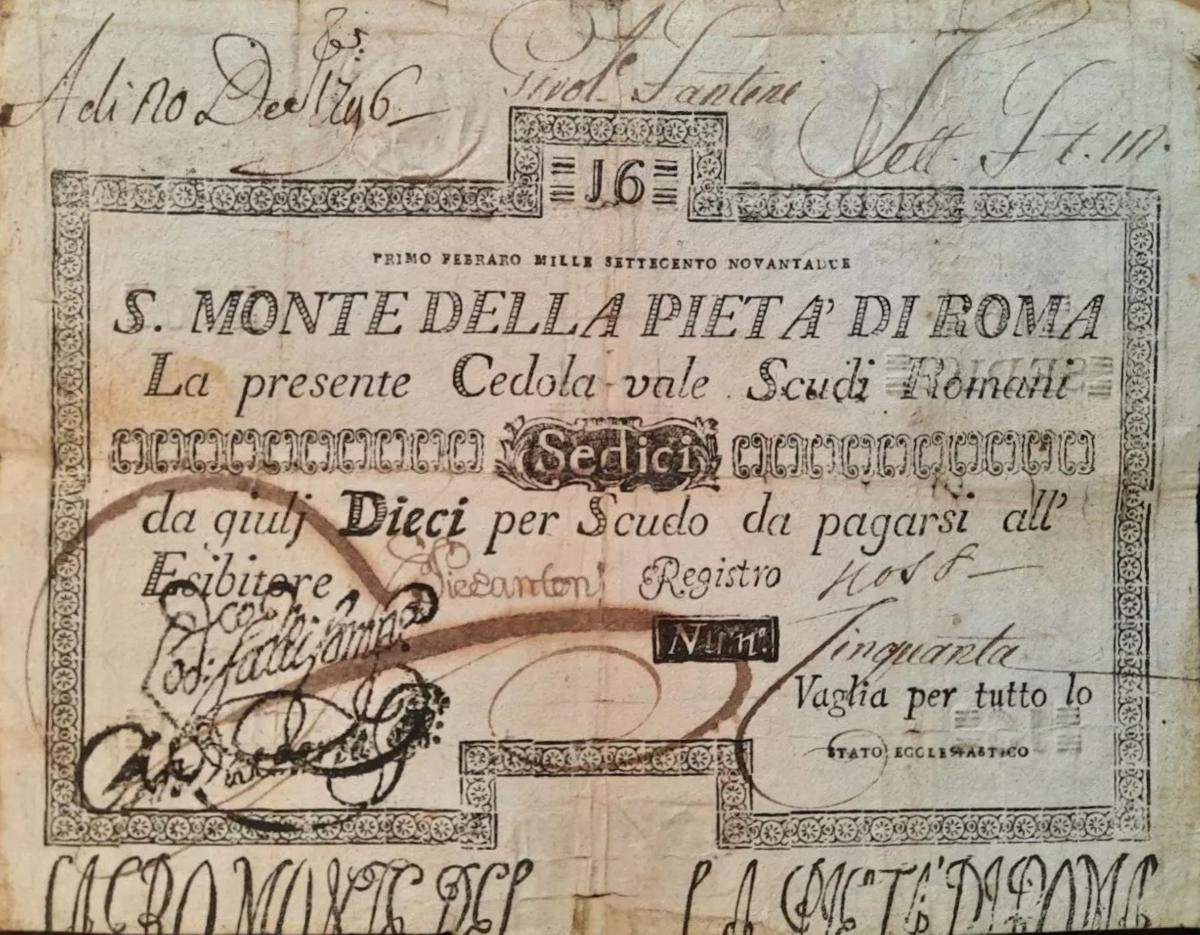 Adi 20 Dec 1796
16
PRIMO FEBRARO MILLE SETTECENTO NOVANTADUE
S. MONTE DELLA PIETA' DI ROMA
La presente Cedola vale Scudi Romani
Sedici
da giulj Dieci per Scudo da pagarsi all'
Esibitore Registro
Num.
Cinquanta
Vaglia per tutto lo
STATO ECCLESIASTICO
SACRO MONTE DEL LA PIETA' DI ROMA